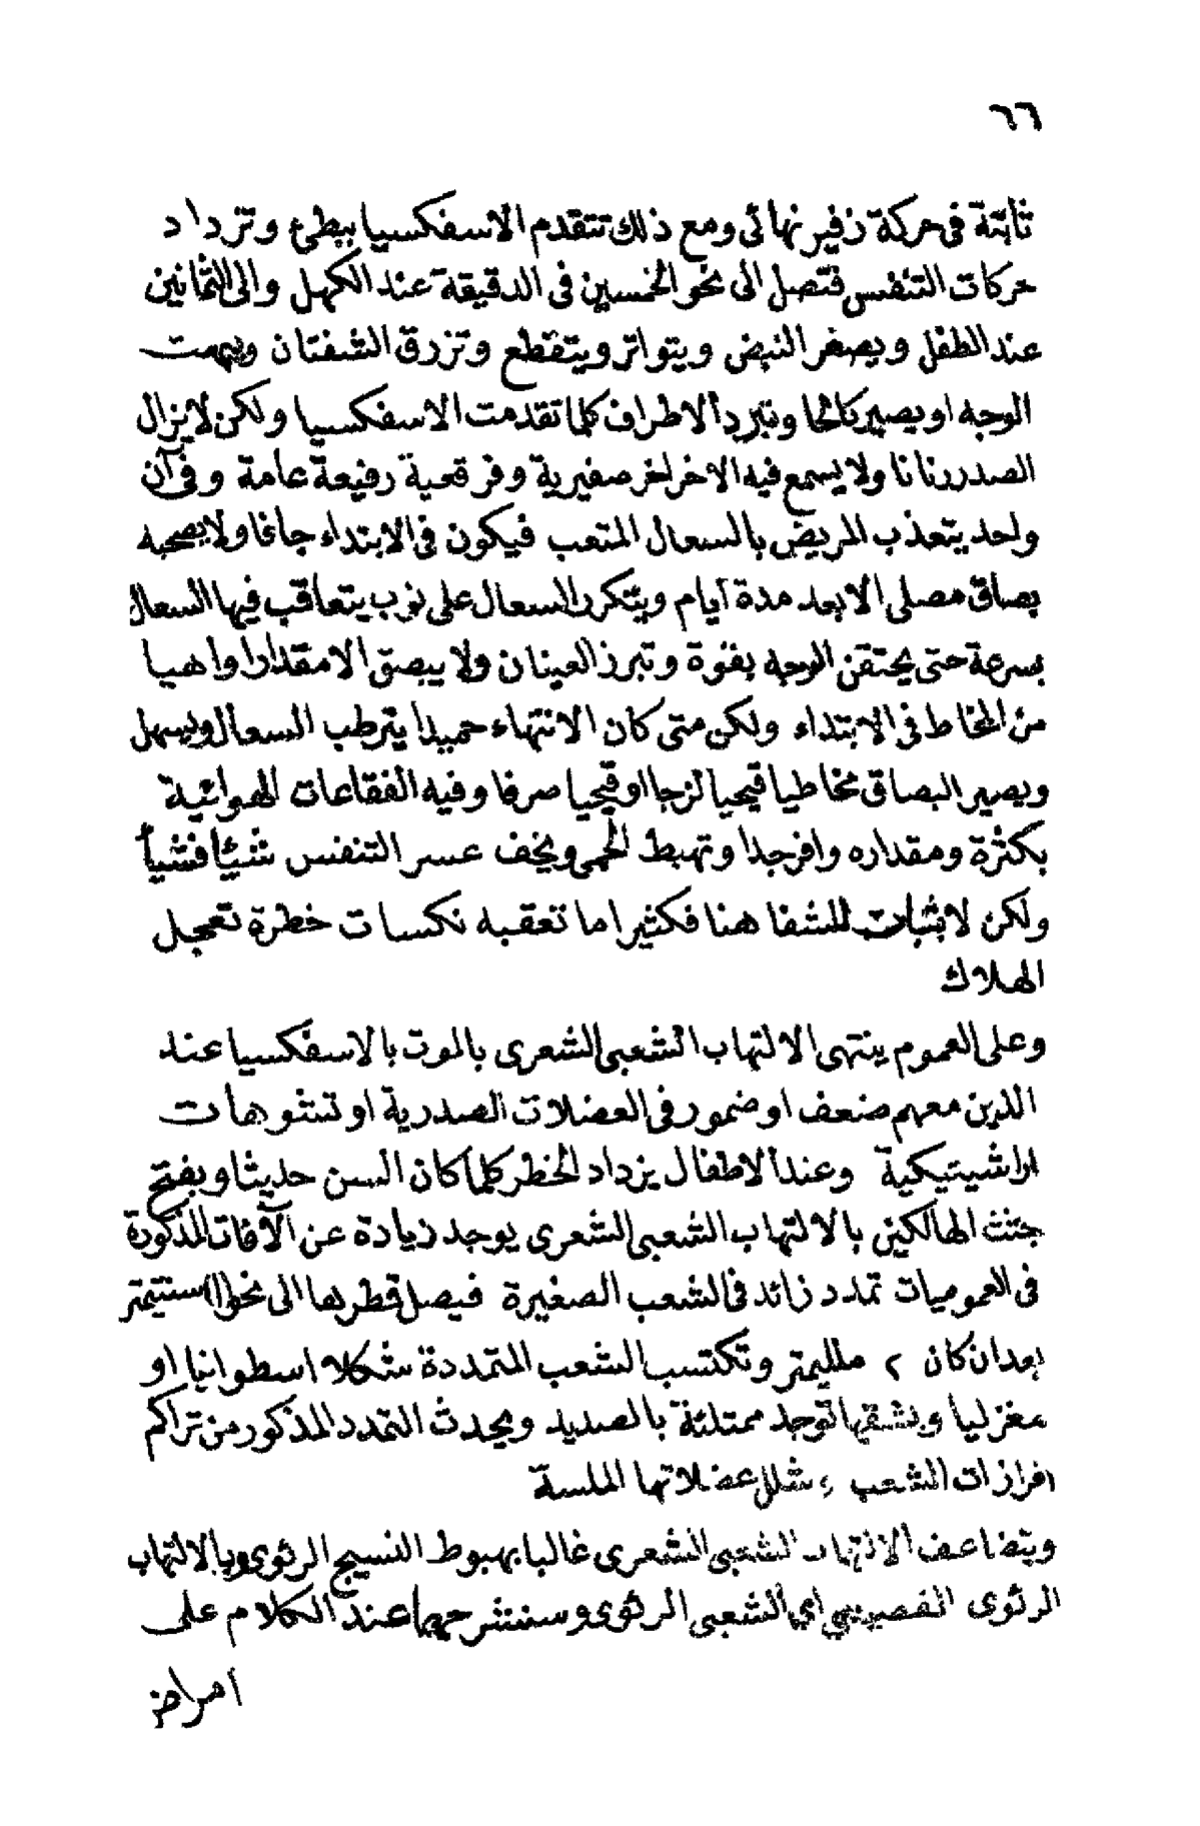 ٦٦
ثابتة فى حركة زفير نهائى ومع ذلك تتقدم الاسفكسيا ببطئ وتزداد
حركات التنفس فتصل الى نحو الخمسين فى الدقيقة عند الكهل والى الثمانين
عند الطفل ويصغر النبض ويتواتر ويتقطع وتزرق الشفتان ويبهت
الوجه او يصير كالحا وتبرد الاطراف كلما تقدمت الاسفكسيا ولكن لايزال
الصدر رنانا ولا يسمع فيه الاخراخر صفيرية وفرقعية رفيعة عامة وفى آن
واحد يتعذب المريض بالسعال المتعب فيكون فى الابتداء جافا ولا يصحبه
بصاق مصلى الا بعد مدة ايام ويتكرر السعال على نوب يتعاقب فيها السعال
بسرعة حتى يحتقن الوجه بقوة وتبرز العينان ولا يبصق الا مقدارا واهيا
من المخاط فى الابتداء ولكن متى كان الانتهاء حميدا يترطب السعال ويسهل
ويصير البصاق مخاطيا قيحيا لزجا او قيحيا صرفا وفيه الفقاعات الهوائية
بكثرة ومقداره وافر جدا وتهبط الحمى ويخف عسر التنفس شيئا فشيأ
ولكن لا ثبات للشفا هنا فكثيرا ما تعقبه نكسات خطرة تعجل
الهلاك
وعلى العموم ينتهى الالتهاب الشعبى الشعرى بالموت بالاسفكسيا عند
الذين معهم ضعف او ضمور فى العضلات الصدرية او تشوهات
اراشيتيكية وعند الاطفال يزداد الخطر كلما كان السن حديثا وبفتح
جثث الهالكين بالالتهاب الشعبى الشعرى يوجد زيادة عن الآفات المذكورة
فى العموميات تمدد زائد فى الشعب الصغيرة فيصل قطرها الى نحو ١ سنتيمتر
بعد ان كان ٢ ملليمتر وتكتسب الشعب المتمددة شكلا اسطوانيا او
مغزليا وبشقها توجد ممتلئة بالصديد ويحدث التمدد المذكور من تراكم
افرازات الشعب وشلل عضلاتها الملسة
ويتضاعف الالتهاب الشعبى الشعرى غالبا بهبوط النسيج الرئوى وبالالتهاب
الرئوى الفصيصى اى الشعبى الرئوى وسنشرحهما عند الكلام على
امراض